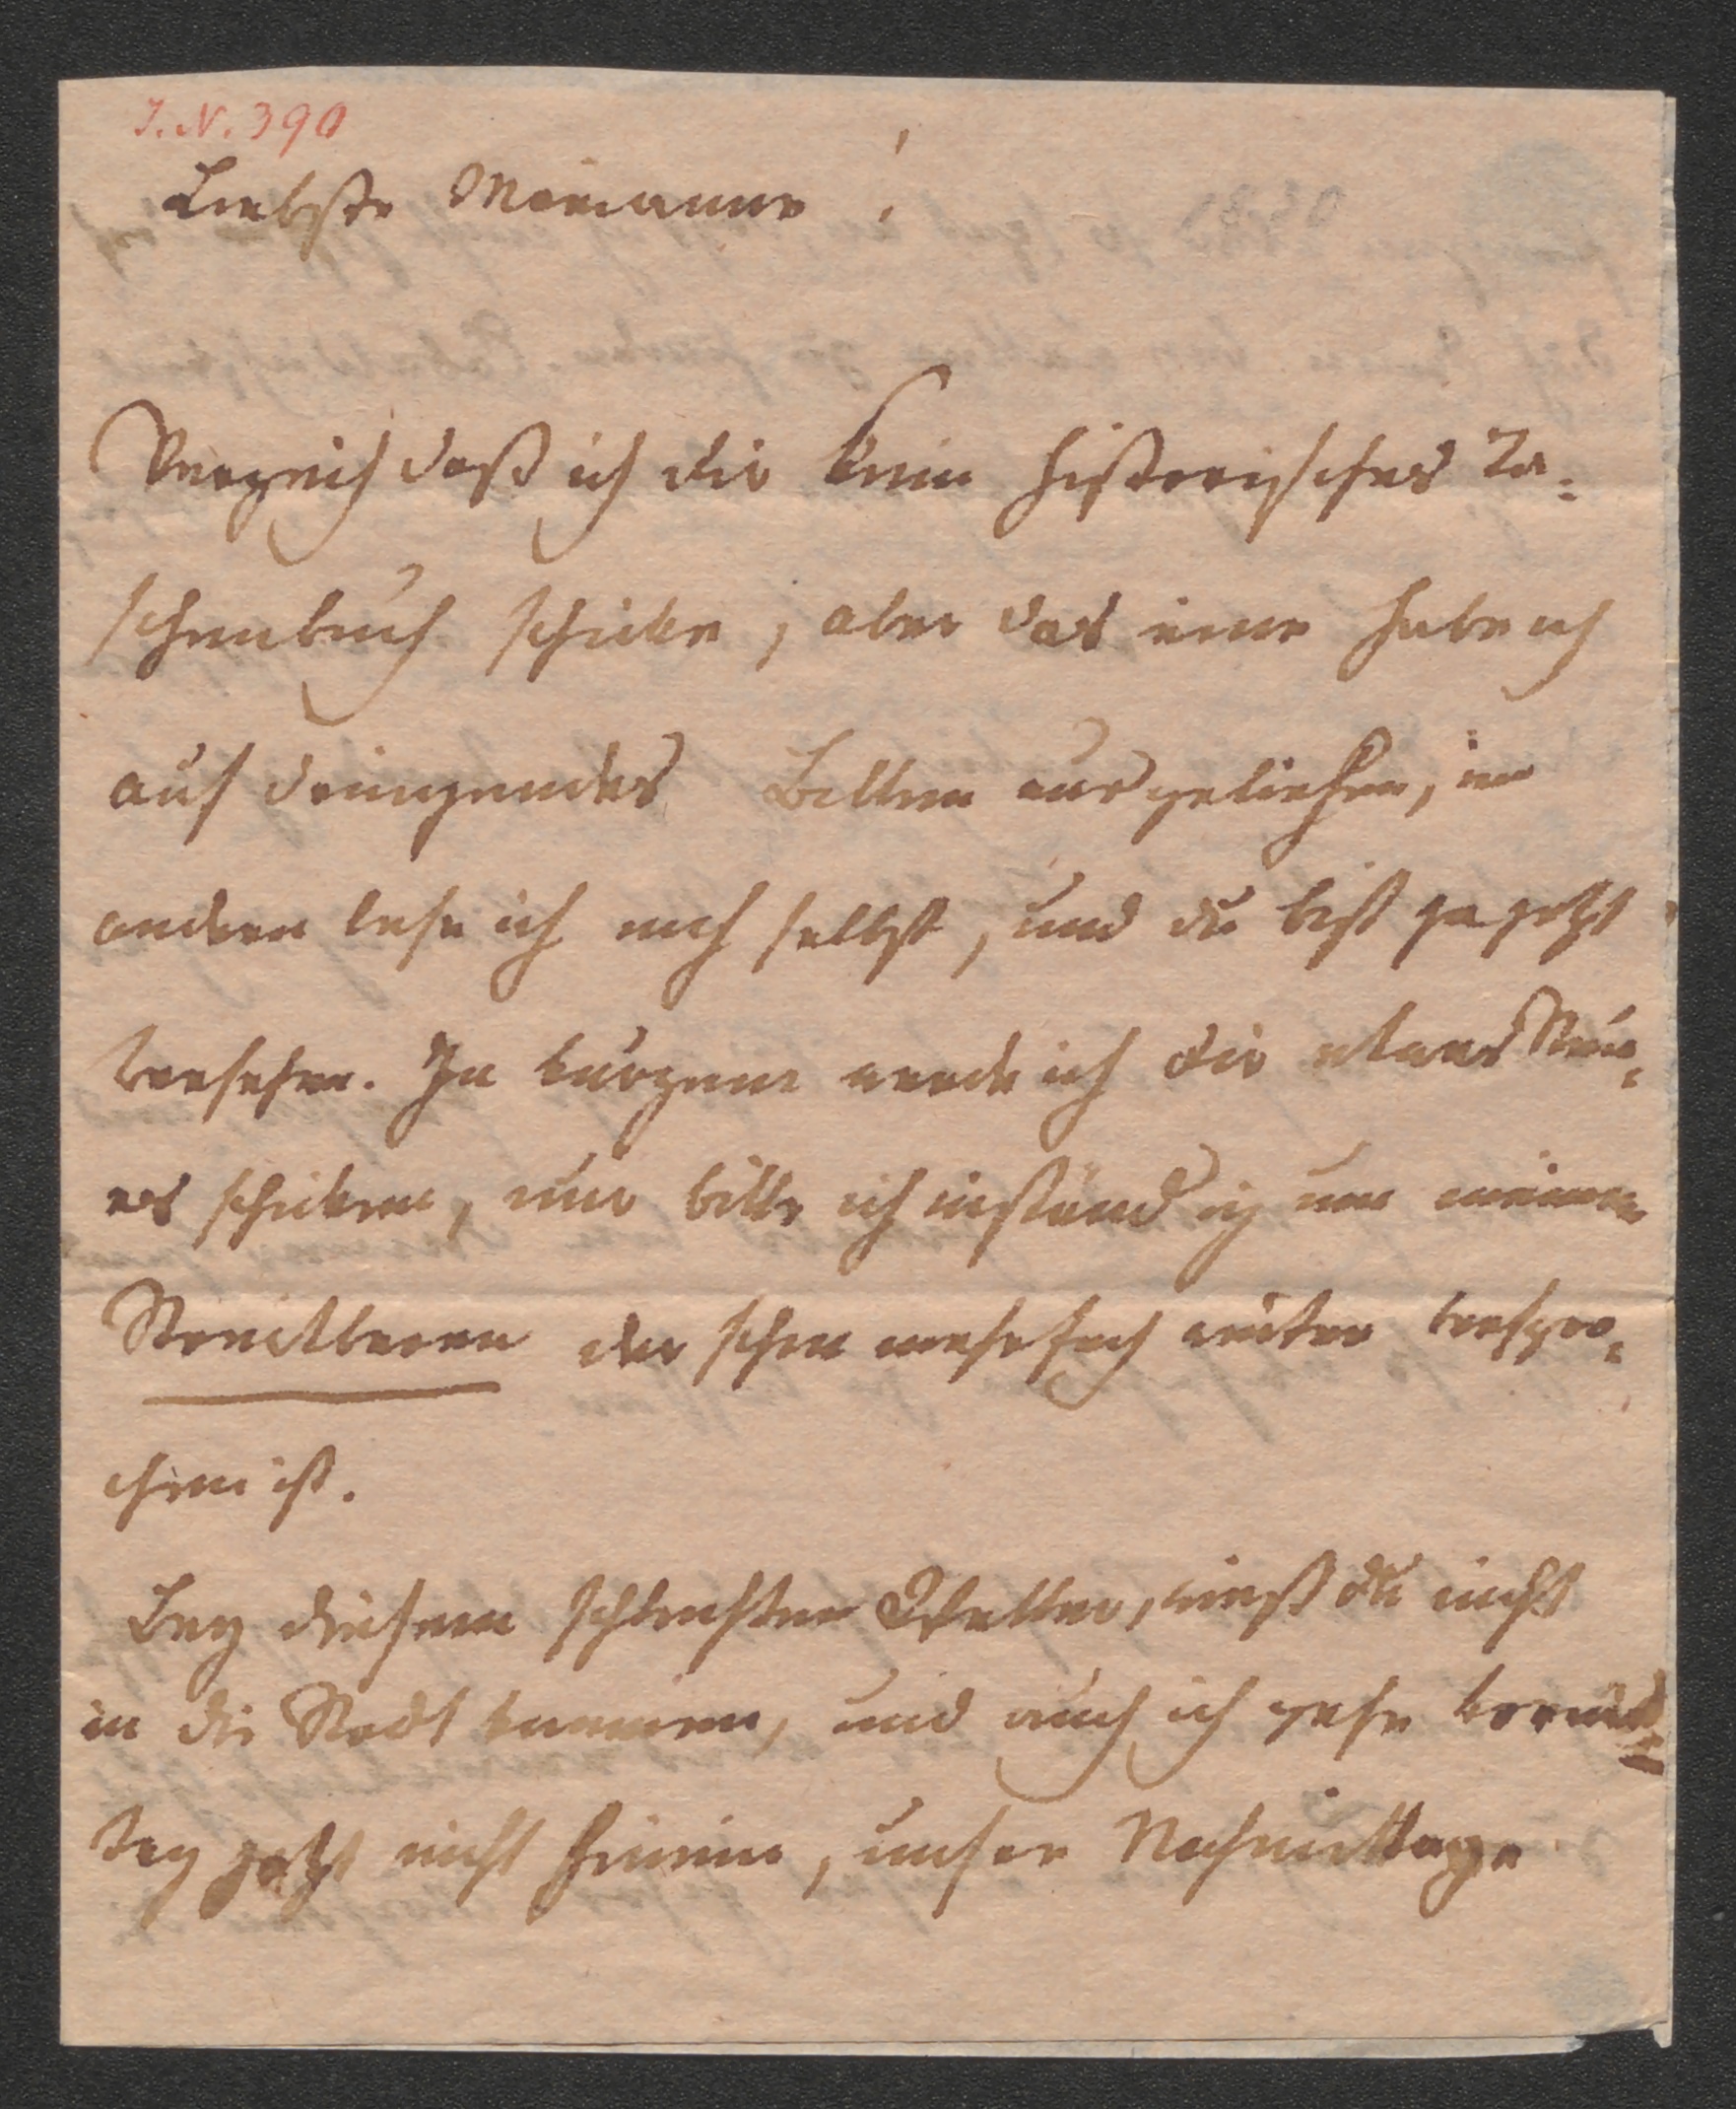 I. N. 390
Liebste Marianne !
Verzeih daß ich dir kein historisches Ta=
schenbuch schicke, aber das eine habe ich
auf dringendes Bitten ausgeliehen, im
andern lese ich noch selbst, und du bist ja jetzt
versehen. In kurzem werde ich dir etwas Neu=
es schicken, nur bitte ich inständig um meinen
der schon mehrfach weiter verspro=
chen ist.
Bey diesem schlechten Wetter, wirst du nicht
in die Stadt kommen, und auch ich gehe vormit=
tag jetzt nicht hinein, unsere Nachmittage